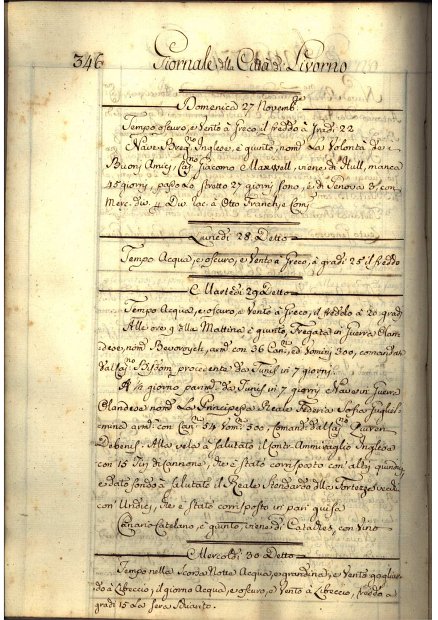 346 Giornale della Città di Livorno
Domenica 27 Novemb.re
Tempo oscuro, e vento à Greco il freddo à gradi 22
Nave Breg.no Inglese, è giunto, nom.o La Volontà dè i
Buoni Amici, Cap.no Giacomo Maxwell, viene di Hull, manca
45 giorni, passò lo stretto 27 giorni sono, è di Genova 3, con
Merc. div. à Div. rac. à Otto Franch, e Com.i
Lunedi 28 Detto
Tempo Acqua, e oscuro, e Vento à Greco, à gradi 25 il freddo
Martedi 29 Detto
Tempo Acqua, e oscuro, e Vento à Greco, il freddo à 20 gradi
Alle ore 9 della Mattina è giunto, Fregata in Guerra Olan-
dese, nom. arm. con 36 Can.i, ed Uomini 300, comandat.
dal Cap.no procedente da Tunis in 7 giorni
A ½ giorno parim.ti da Tunis in 7 giorni Nave in Guerra
Olandese nom.a La Principessa Reale Federica Sofia Guglel-
mina arm.a con Can.i 54 Uom.ni 500, Comand. dal Cap.no
Alla vela à salutato il Contr'Ammiraglio Inglese
con 15 Tiri di Cannone, che è stato corrisposto con altri quindici,
e dato fondo à salutato il Reale Stendardo della Fortezza vecchia
con Undici, che è stato corrisposto in pari guisa
Canario Catelano, è giunto, viene di Cadadies, con Vino
Mercoldi 30 Detto
Tempo nella scorsa Notte Acqua, e grandine, e Vento gagliar-
do à Libeccio, il giorno Acqua, e oscuro, e Vento à Libeccio, freddo a
gradi 15 a la sera